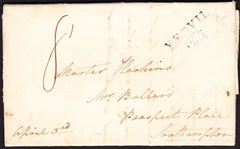 8
YEOVIL
Master Hoskins
Mrs Bullard
Prospect Place
Southampton
April 3rd